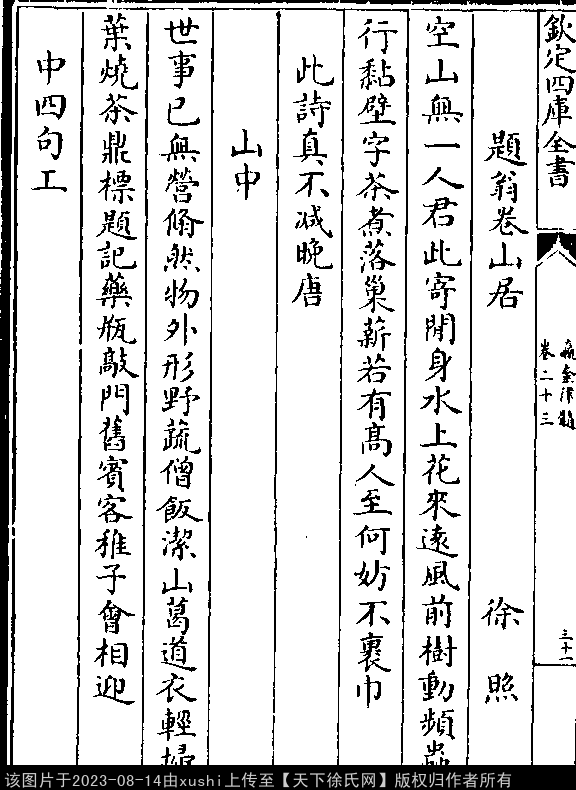 欽定四庫全書
瀛奎律髓
卷二十三
三十一
題翁卷山居 徐照
空山無一人君此寄閒身水上花來遠風前樹動頻蟲
行黏壁字茶煮落巢薪若有高人至何妨不裹巾
此詩真不减晚唐
山中
世事已無營翛然物外形野蔬僧飯潔山葛道衣輕掃
葉燒茶鼎標題記藥瓶敲門舊賓客稚子會相迎
中四句工
该图片于2023-08-14由xushi上传至【天下徐氏网】版权归作者所有